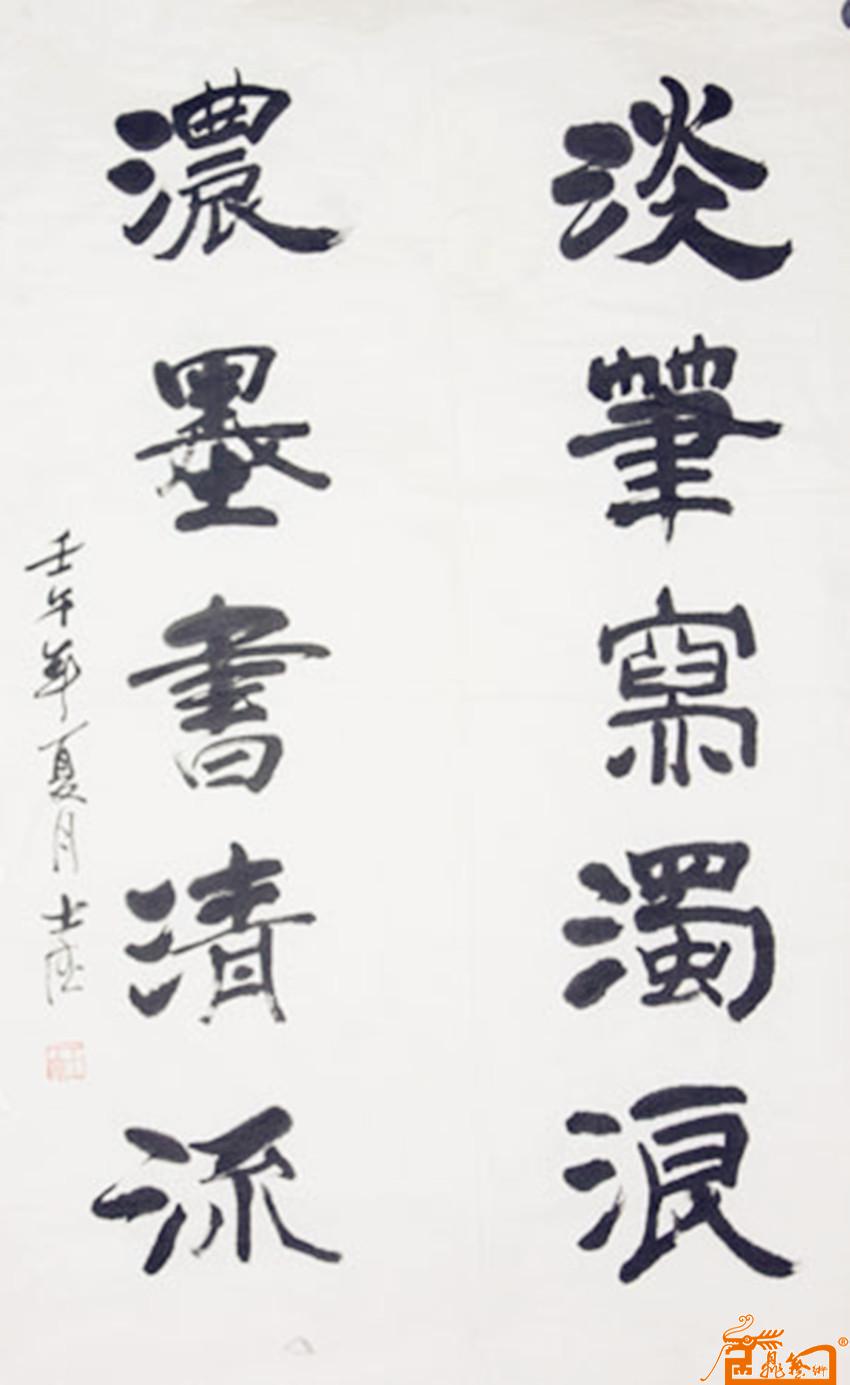 淡筆寫濁浪
濃墨書清流
壬午年夏月士